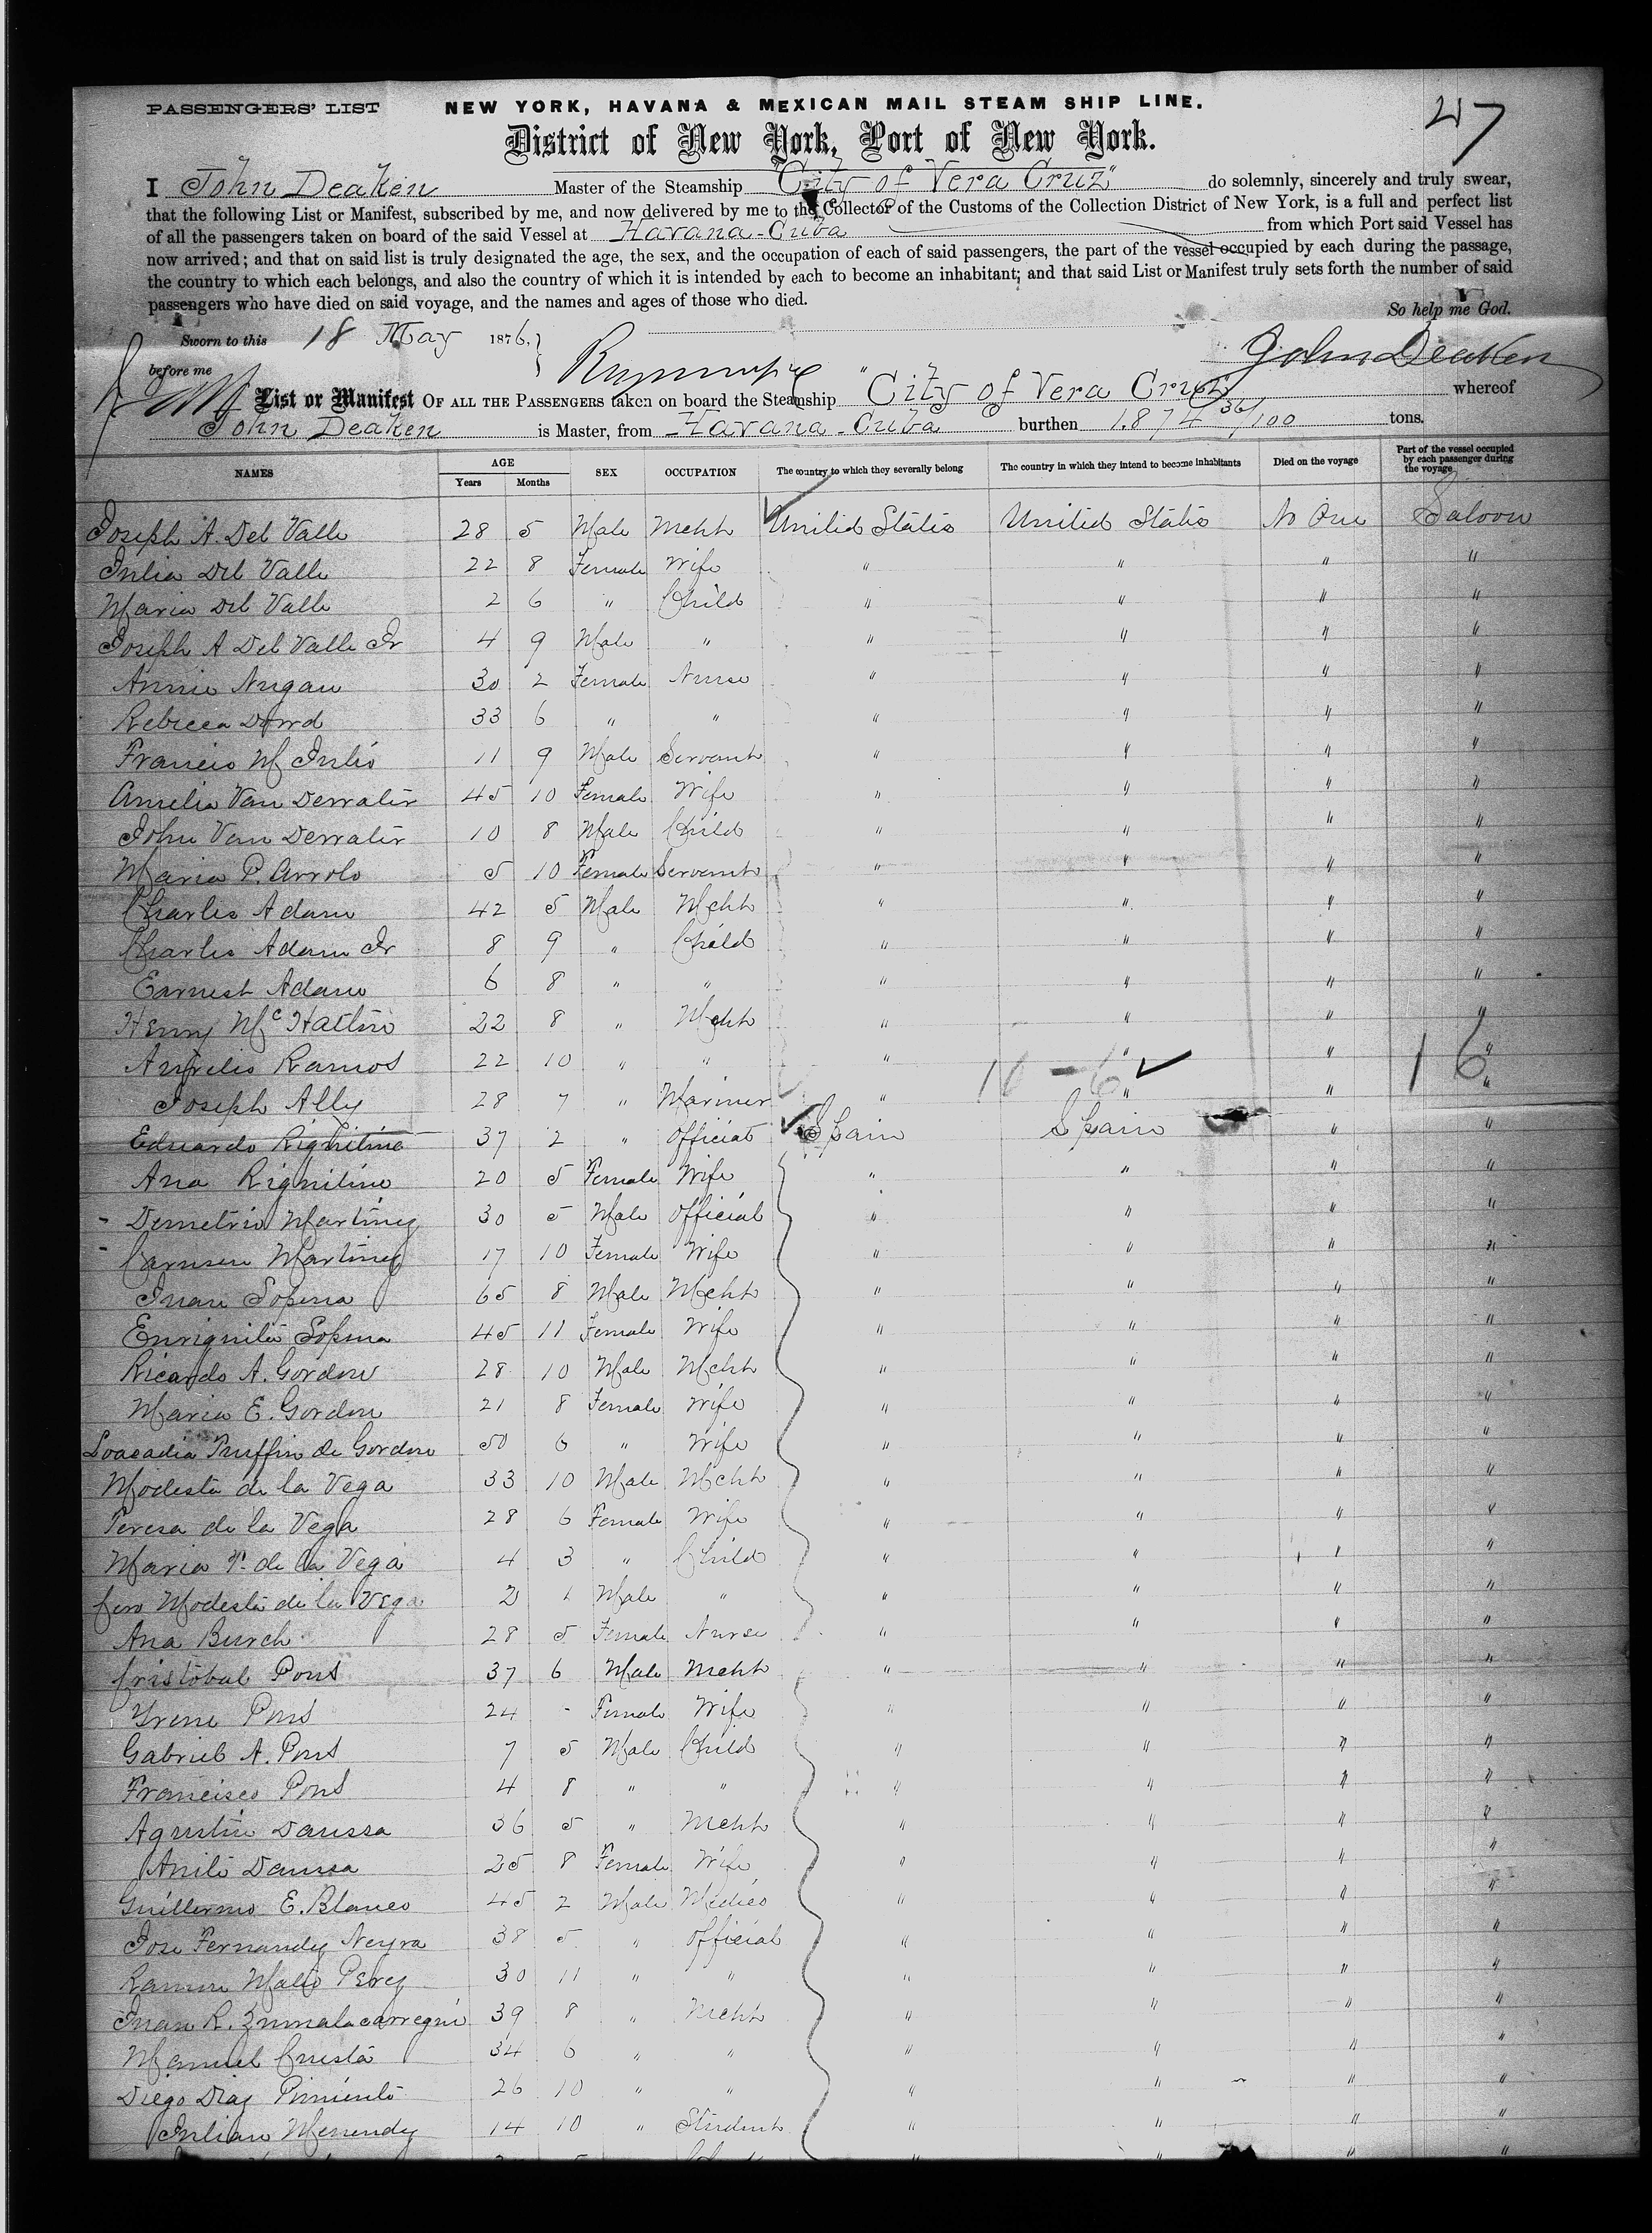 PASSENGERS' LIST NEW YORK, HAVANA & MEXICAN MAIL STEAM SHIP LINE. 47
District of New York, Port of New York.
I John Deaken Master of the Steamship "City of Vera Cruz" do solemnly, sincerely and truly swear,
that the following List or Manifest, subscribed by me, and now delivered by me to the Collector of the Customs of the Collection District of New York, is a full and perfect list
of all the passengers taken on board of the said Vessel at Havana - Cuba from which Port said Vessel has
now arrived; and that on said list is truly designated the age, the sex, and the occupation of each of said passengers, the part of the vessel occupied by each during the passage,
the country to which each belongs, and also the country of which it is intended by each to become an inhabitant; and that said List or Manifest truly sets forth the number of said
passengers who have died on said voyage, and the names and ages of those who died.
So help me God.
Sworn to this 18 May 1876, John Deaken
before me
List or Manifest OF ALL THE PASSENGERS taken on board the Steamship "City of Vera Cruz" whereof
John Deaken is Master, from Havana - Cuba burthen 1.874 36/100 tons.
NAMES AGE Years Months SEX OCCUPATION The country to which they severally belong The country in which they intend to become inhabitants Died on the voyage Part of the vessel occupied by each passenger during the voyage
Joseph A. Del Valle 28 5 Male Mcht United States United States No One Saloon
Julia Del Valle 22 8 Female Wife " " " "
Maria Del Valle 2 6 " Child " " " "
Joseph A Del Valle Jr 4 9 Male " " " " "
Annie Nugan 30 2 Female Nurse " " " "
Rebecca Dowd 33 6 " " " " " "
Francis M Julio 11 9 Male Servant " " " "
Amelia Van Derrater 45 10 Female Wife " " " "
John Van Derrater 10 8 Male Child " " " "
Maria P. Arrolo 5 10 Female Servant " " " "
Charles Adam 42 5 Male Mcht " " " "
Charles Adam Jr 8 9 " Child " " " "
Earnest Adam 6 8 " " " " " "
Henry Mc Hatlin 22 8 " Mcht " " " "
Aurelio Ramos 22 10 " " " " " " 16
Joseph Ally 28 7 " Mariner " " " "
Eduardo 37 2 " Official Spain Spain " "
Ana 20 5 Female Wife " " " "
- Demetrio Martinez 30 5 Male Official " " " "
- Carmen Martinez 17 10 Female Wife " " " "
Juan Sopena 65 8 Male Mcht " " " "
Enriquita Sopena 45 11 Female Wife " " " "
Ricardo A. Gordon 28 10 Male Mcht " " " "
Maria E. Gordon 21 8 Female Wife " " " "
Loacadia Truffin de Gordon 50 6 " Wife " " " "
Modesto de la Vega 33 10 Male Mcht " " " "
Teresa de la Vega 28 6 Female Wife " " " "
Maria T. de la Vega 4 3 " Child " " " "
Modesto de la Vega 2 Male " " " " "
Ana Burch 28 5 Female Nurse " " " "
Cristobal Pons 37 6 Male Mcht " " " "
Yrene Pons 24 - Female Wife " " " "
Gabriel A. Pons 7 5 Male Child " " " "
Francisco Pons 4 8 " " " " " "
Agustin Daussa 36 5 " Mcht " " " "
Daussa 25 8 Female Wife " " " "
Guillermo E. Blanco 45 2 Male Medico " " " "
Jose Fernandez Neyra 38 5 " Official " " " "
Ramon Perez 30 11 " " " " " "
Juan R. Zumalacarregui 39 8 " Mcht " " " "
Manuel Cuesta 34 6 " " " " " "
Diego Diaz Pimienta 26 10 " " " " " "
Julian Menendez 14 10 " Student " " " "